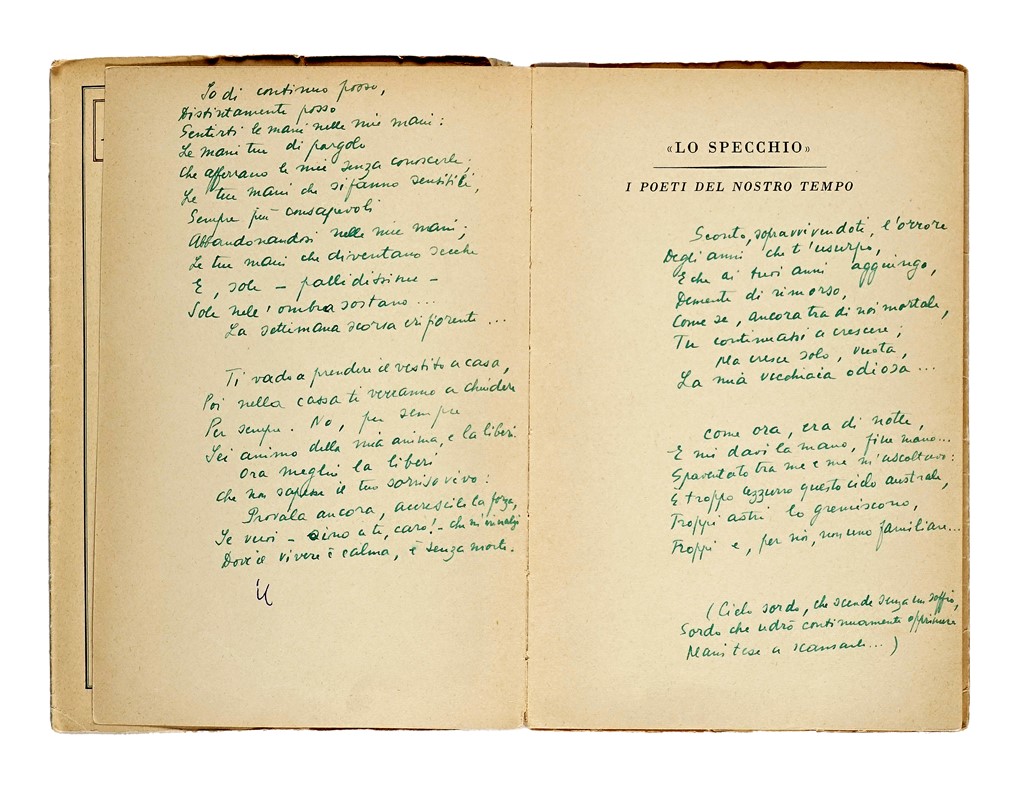 Io di continuo posso,
Distintamente posso
Sentirti le mani nelle mie mani:
Le mani tue di pargolo
Che afferrano le mie senza conoscerle;
Le tue mani che si fanno sensibili,
Sempre più consapevoli
Abbandonandosi nelle mie mani;
Le tue mani che diventano secche
E, sole – pallidissime –
Sole nell'ombra sostano ...
La settimana scorsa eri fiorente ...
Ti vado a prendere il vestito a casa,
Poi nella cassa ti verranno a chiudere
Per sempre. No, per sempre
Sei animo della mia anima, e la liberi.
Ora meglio la liberi
Che non sapesse il tuo sorriso vivo:
Provala ancora, accrescile la forza,
Se vuoi – sino a te, caro! – che m'innalzi
Dove il vivere è calma, è senza morte.
«LO SPECCHIO»
I POETI DEL NOSTRO TEMPO
Sconto, sopravvivendoti, l'orrore
Degli anni che t'usurpo,
E che ai tuoi anni aggiungo,
Demente di rimorso,
Come se, ancora tra di noi mortale,
Tu continuassi a crescere;
Ma cresce solo, vuota,
La mia vecchiaia odiosa ...
Come ora, era di notte,
E mi davi la mano, fine mano...
Spaventato tra me e me m'ascoltavo:
E troppo azzurro questo cielo australe,
Troppi astri lo gremiscono,
Troppi e, per noi, non uno familiare...
(Cielo sordo, che scende senza un soffio,
Sordo che udrò continuamente opprimere
Mani tese a scansarlo...)